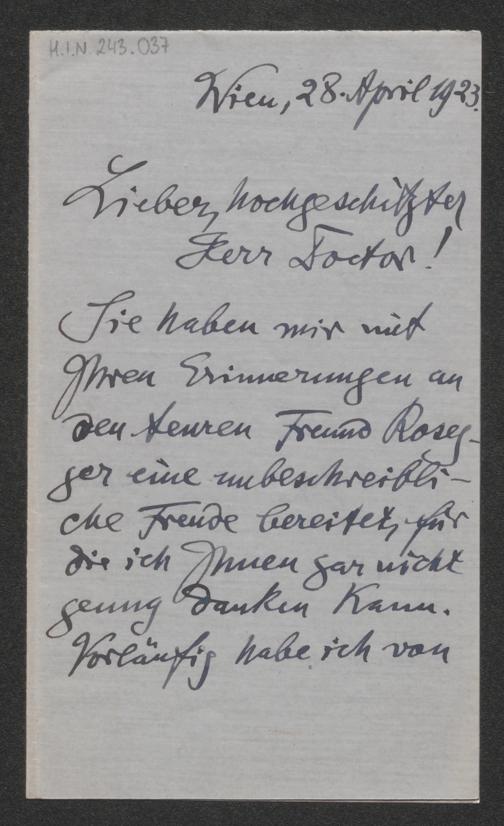 H.I.N. 243.037
Wien, 28. April 1923.
Lieber, hochgeschätzter
Herr Doctor!
Sie haben mir mit
Ihren Erinnerungen an
den teuren Freund Roseg-
ger eine unbeschreibli-
che Freude bereitet, für
die ich Ihnen gar nicht
genug danken kann.
Vorläufig habe ich von